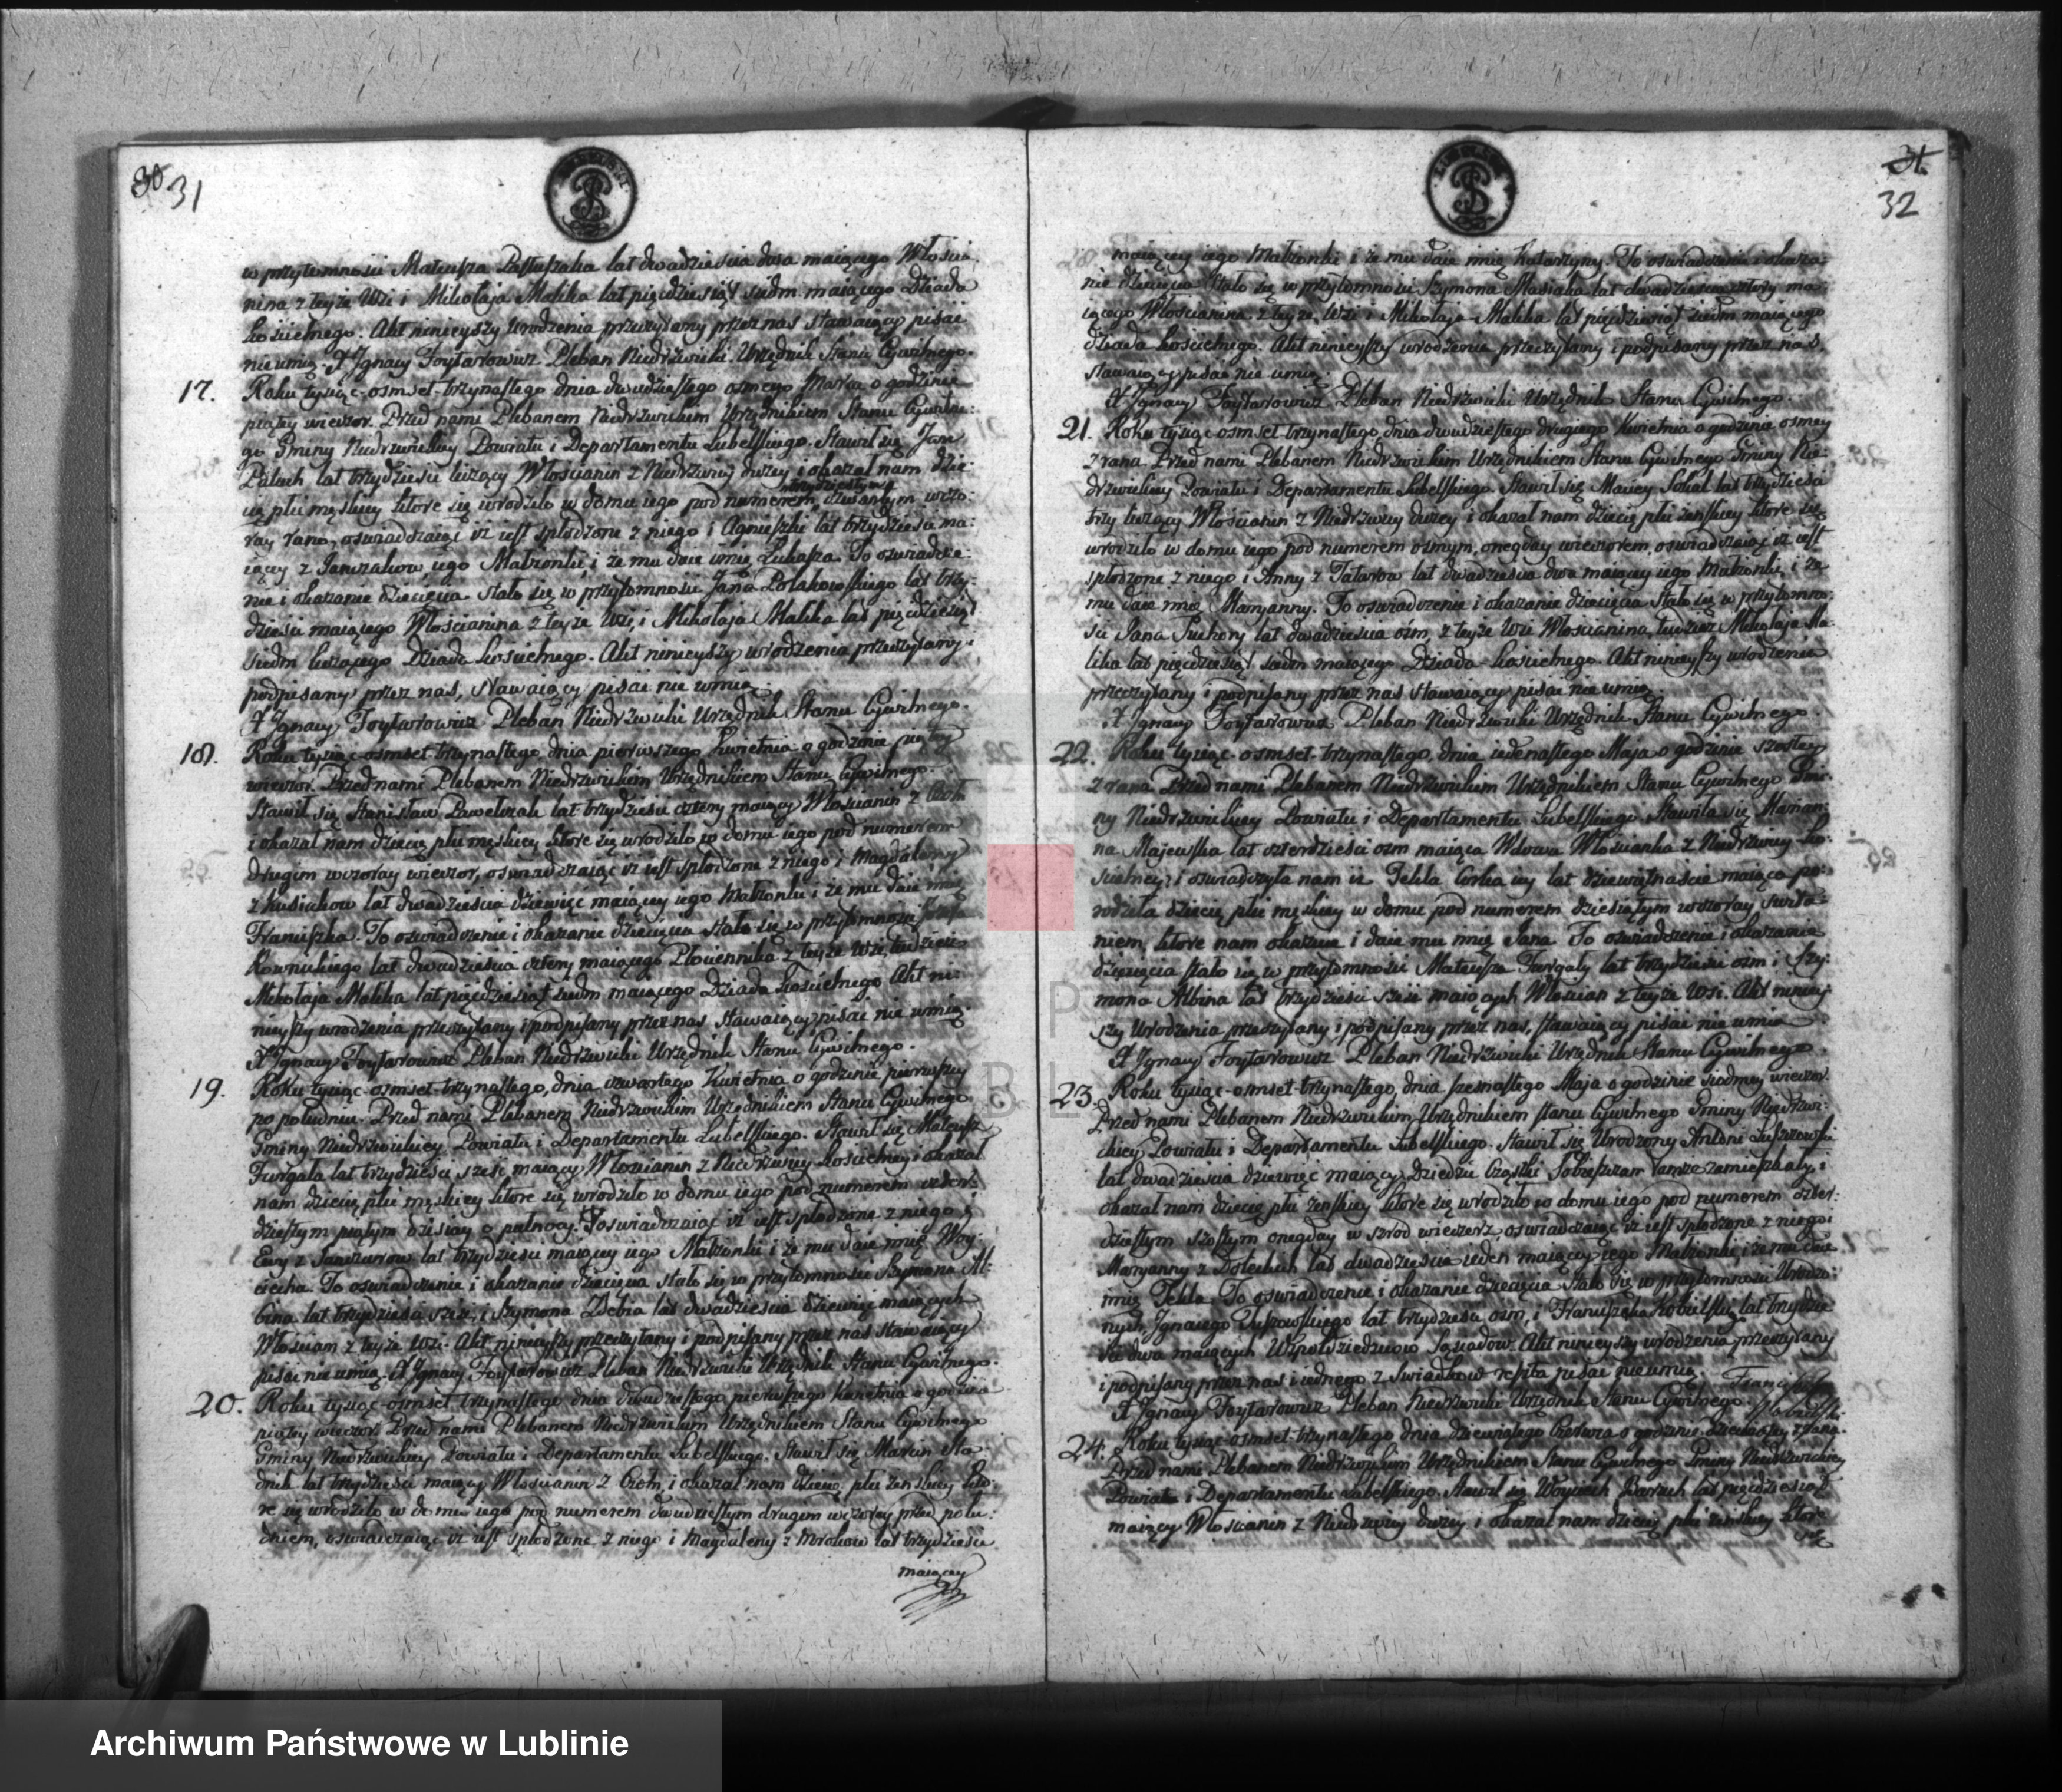 30 31
w przytomności Mateusza Pastuszaka lat dwadzieścia dwa maiącego Włościa
nina z teyże Wsi i Mikołaja Malika lat pięćdziesiąt siedm maiącego Dziada
kościelnego. Akt ninieyszy Urodzenia przeczytany przez nas stawaiący pisać
nie umią. X Ignacy Foytarowicz Pleban Niedrzwicki Urzędnik Stanu Cywilnego.
17. Roku tysiąc-osmset-trzynastego dnia dwudziestego osmego Marca o godzinie
piątey wieczor. Przed nami Plebanem Niedrzwickim Urzędnikiem Stanu Cywilne-
go Gminy Niedrzwickiey Powiatu i Departamentu Lubelskiego. Stawił się Jan
Paluch lat trzydzieści liczący Włościanin z Niedrzwicy dużey i okazał nam dzie-
cię płci męskiey które się urodziło w domu iego pod numerem trzydziestym dziewiątym wczo-
ray rano, oświadczaiąc iż iest spłodzone z niego i Agnieszki lat trzydzieści ma-
iącey z Janczaków, iego Małżonki, i że mu daie imię Łukasza. To oświadcze-
nie i okazanie dziecięcia stało się w przytomności Jana Polakowskiego lat trzy-
dzieści maiącego Włościanina z teyże Wsi, i Mikołaja Malika lat pięćdziesiąt
siedm liczącego Dziada kościelnego. Akt ninieyszy urodzenia przeczytany i
podpisany przez nas, stawaiący pisać nie umią.
X Ignacy Foytarowicz Pleban Niedrzwicki Urzędnik Stanu Cywilnego.
18. Roku tysiąc-osmset-trzynastego, dnia pierwszego Kwietnia o godzinie piątey
wieczor. Przed nami Plebanem Niedrzwickim Urzędnikiem Stanu Cywilnego.
Stawił się Stanisław Pawelczak lat trzydzieści cztery maiący Włościanin z
i okazał nam dziecię płci męskiey które się urodziło w domu iego pod numerem
drugim wczoray wieczor, oświadczaiąc iż iest spłodzone z niego i Magdaleny
z Kusików lat dwadzieścia dziewięć maiącey iego Małżonki i że mu daie imię
Franciszka. To oświadczenie i okazanie dziecięcia stało się w przytomności Józefa
lat dwadzieścia cztery maiącego z teyże Wsi, tudzież
Mikołaja Malika lat pięćdziesiąt siedm maiącego Dziada kościelnego Akt ni-
nieyszy urodzenia przeczytany i podpisany przez nas stawaiący pisać nie umią.
X Ignacy Foytarowicz Pleban Niedrzwicki Urzędnik Stanu Cywilnego.
19. Roku tysiąc-osmset-trzynastego, dnia czwartego Kwietnia o godzinie pierwszey
po południu. Przed nami Plebanem Niedrzwickim Urzędnikiem Stanu Cywilnego
Gminy Niedrzwickiey Powiatu i Departamentu Lubelskiego. Stawił się Mateusz
Furgała lat trzydzieści sześć maiący Włościanin z Niedrzwicy kościelney i okazał
nam dziecię płci męskiey które się urodziło w domu iego pod numerem
dziestym piątym dzisiay o północy. oświadczaiąc iż iest spłodzone z niego i
Ewy z lat trzydzieści maiącey iego Małżonki i że mu daie imię Woy-
ciecha. To oświadczenie i okazanie dziecięcia stało się w przytomności Szymona Al-
bina lat trzydzieści sześć, i Szymona lat dwadzieścia dziewięć maiących
Włościan z teyże Wsi. Akt ninieyszy przeczytany i podpisany przez nas stawaiący
pisać nie umią. X Ignacy Foytarowicz Pleban Niedrzwicki Urzędnik Stanu Cywilnego.
20. Roku tysiąc-osmset trzynastego dnia dwudziestego pierwszego Kwietnia o godzinie
piątey wieczor. Przed nami Plebanem Niedrzwickim Urzędnikiem Stanu Cywilnego
Gminy Niedrzwickiey Powiatu i Departamentu Lubelskiego. Stawił się Marcin
lat trzydzieści maiący Włościanin z i okazał nam dziecię płci żeńskiey któ-
re się urodziło w domu iego pod numerem dwudziestym drugim wczoray przed połu-
dniem, oświadczaiąc iż iest spłodzone z niego i Magdaleny z Mroków lat trzydzieści
maiącey
31. 32
maiącey iego Małżonki i że mu daie imię Katarzyny. To oświadczenie i okaza-
nie dziecięcia stało się w przytomności Szymona Masiaka lat dwadzieścia cztery ma-
iącego Włościanina z teyże Wsi i Mikołaja Malika lat pięćdziesiąt siedm maiącego
dziada kościelnego. Akt ninieyszy urodzenia przeczytany i podpisany przez nas,
stawaiący pisać nie umią.
X Ignacy Foytarowicz Pleban Niedrzwicki Urzędnik Stanu Cywilnego.
21. Roku tysiąc-osmset-trzynastego, dnia dwudziestego drugiego Kwietnia o godzinie osmey
z rana. Przed nami Plebanem Niedrzwickim Urzędnikiem Stanu Cywilnego Gminy Nie-
drzwickiey Powiatu i Departamentu Lubelskiego. Stawił się Maciey Sokal lat trzydzieści
trzy liczący Włościanin z Niedrzwicy dużey i okazał nam dziecię płci żeńskiey które się
urodziło w domu iego pod numerem osmym, onegday wieczorem, oświadczaiąc iż iest
spłodzone z niego i Anny z Tatarów lat dwadzieścia dwa maiącey iego Małżonki, i że
mu daie imię Maryanny. To oświadczenie i okazanie dziecięcia stało się w przytomno-
ści Jana Suchory lat dwadzieścia ośm, z teyże Wsi Włościanina, tudzież Mikołaja Ma-
lika lat pięćdziesiąt siedm maiącego Dziada kościelnego. Akt ninieyszy urodzenia
przeczytany i podpisany przez nas stawaiący pisać nie umią.
X Ignacy Foytarowicz Pleban Niedrzwicki Urzędnik Stanu Cywilnego.
22. Roku tysiąc-osmset-trzynastego, dnia iedenastego Maja o godzinie szóstey
z rana Przed nami Plebanem Niedrzwickim Urzędnikiem Stanu Cywilnego Gmi-
ny Niedrzwickiey Powiatu i Departamentu Lubelskiego Stawiła się Marian-
na Majewska lat czterdzieści ośm maiąca Wdowa Włościanka z Niedrzwicy Ko-
ścielney; i oświadczyła nam iż Tekla Corka iey lat dziewiętnaście maiąca po-
rodziła dziecię płci męskiey w domu pod numerem dziesiątym wczoray świta-
niem, które nam okazuie i daie mu imię Jana To oświadczenie i okazanie
dziecięcia stało się w przytomności Mateusza Furgały lat trzydzieści ośm i Szy-
mona Albina lat trzydzieści sześć maiących Włościan z teyże Wsi. Akt niniey-
szy Urodzenia przeczytany i podpisany przez nas, stawaiący pisać nie umią
X Ignacy Foytarowicz Pleban Niedrzwicki Urzędnik Stanu Cywilnego.
23. Roku tysiąc-osmset-trzynastego, dnia szesnastego Maja o godzinie siodmey wieczor.
Przed nami Plebanem Niedrzwickim Urzędnikiem Stanu Cywilnego Gminy Niedrzwi-
ckiey Powiatu i Departamentu Lubelskiego. Stawił się Urodzony Antoni Tuszowski
lat dwadzieścia dziewięć maiący Dziedzic Cząstki Sobieszczan tamże zamieszkały i
okazał nam dziecię płci żeńskiey które się urodziło w domu iego pod numerem czter-
dziestym szóstym onegday w śród wieczorz, oświadczaiąc iż iest spłodzone z niego i
Maryanny z lat dwadzieścia ieden maiącey iego Małżonki i że mu daie
imię Tekla. To oświadczenie i okazanie dziecięcia stało się w przytomności Urodzo-
nych Ignacego Tuszowskiego lat trzydzieści ośm, i Franciszka Kobielskiego lat trzydzie-
ści dwa maiących Współdziedziców Sąsiadow. Akt ninieyszy urodzenia przeczytany
i podpisany przez nas i iednego z Świadków reszta pisać nie umią. Franciszek
X Ignacy Foytarowicz Pleban Niedrzwicki Urzędnik Stanu Cywilnego.
24. Roku tysiąc-osmset-trzynastego dnia dziewiątego Czerwca o godzinie dziewiątey z rana.
Przed nami Plebanem Niedrzwickim Urzędnikiem Stanu Cywilnego Gminy Niedrzwickiey
Powiatu i Departamentu Lubelskiego. Stawił się Woyciech lat pięćdziesiąt
maiący Włościanin z Niedrzwicy dużey i okazał nam dziecię płci żeńskiey które
się
Archiwum Państwowe w Lublinie